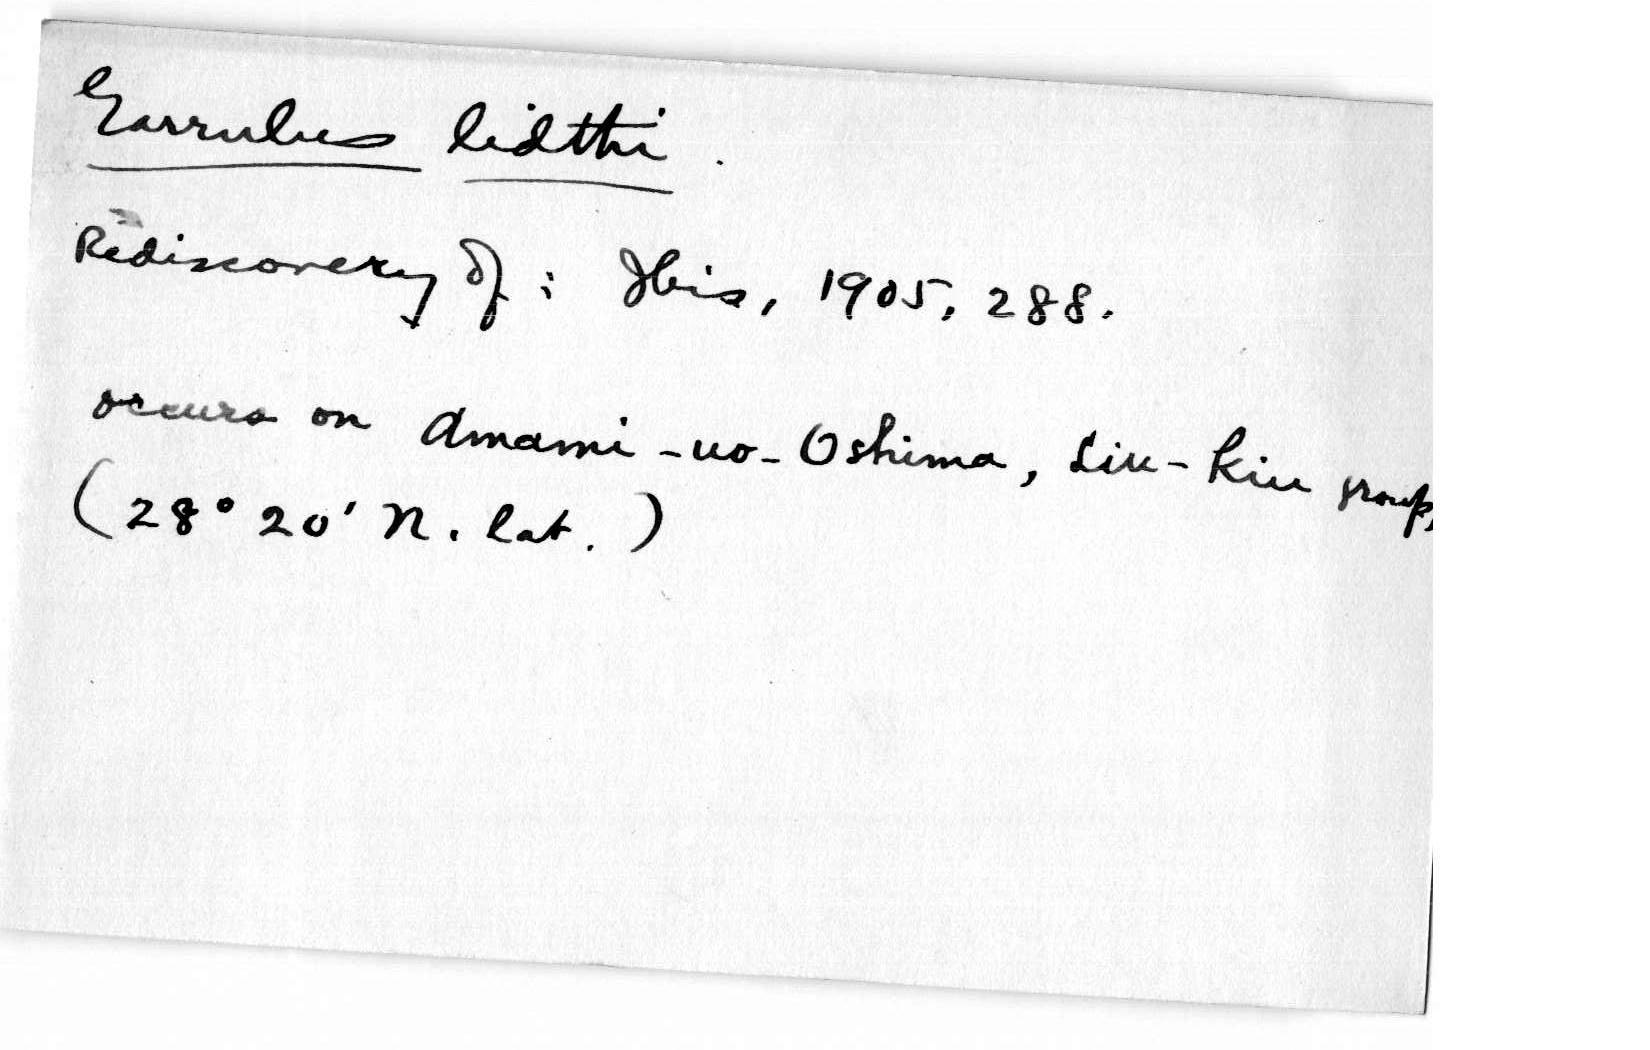 Garrulus lidthi.
Rediscovery of: Ibis, 1905, 288.
occurs on Amami-no-Oshima, Liu-kiu group,
(28° 20' N. lat.)